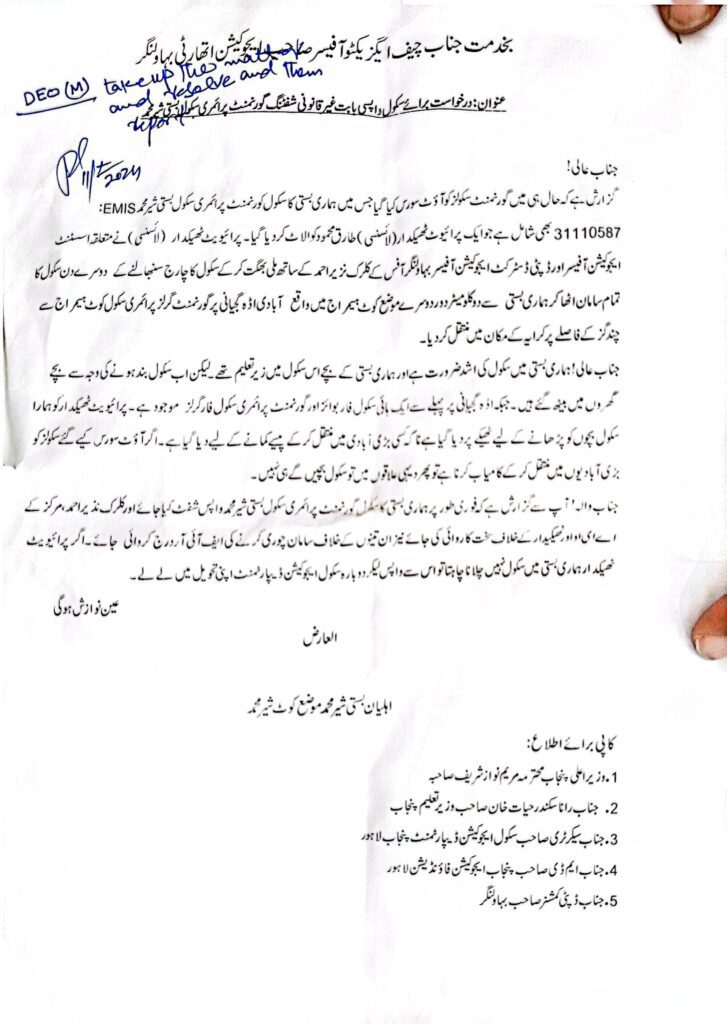 بخدمت جناب چیف ایگزیکٹو آفیسر صاحب ایجوکیشن اتھارٹی بہاولنگر
DEO (M) take up the matter
and resolve and then
report
11/2/2024
عنوان: درخواست برائے سکول واپسی بابت غیر قانونی شفٹنگ گورنمنٹ پرائمری سکول بستی شیر محمد
جناب عالی!
گزارش ہے کہ حال ہی میں گورنمنٹ سکولز کو آؤٹ سورس کیا گیا جس میں ہماری بستی کا سکول گورنمنٹ پرائمری سکول بستی شیر محمد EMIS:
31110587 بھی شامل ہے جو ایک پرائیوٹ ٹھیکیدار (لائسنسی) طارق محمود کو الاٹ کر دیا گیا۔ پرائیویٹ ٹھیکیدار (لائسنسی) نے متعلقہ اسسٹنٹ
ایجوکیشن آفیسر اور ڈپٹی ڈسٹرکٹ ایجوکیشن آفیسر بہاولنگر آفس کے کلرک نزیر احمد کے ساتھ ملی بھگت کر کے سکول کا چارج سنبھالنے کے دوسرے دن سکول کا
تمام سامان اٹھا کر ہماری بستی سے دو کلومیٹر دور دوسرے موضع کوٹ بہمراج میں واقع آبادی اڈہ گجیانی پر گورنمنٹ گرلز پرائمری سکول کوٹ بہمراج سے
چند گز کے فاصلے پر کرایہ کے مکان میں منتقل کر دیا۔
جناب عالی! ہماری بستی میں سکول کی اشد ضرورت ہے اور ہماری بستی کے بچے اس سکول میں زیر تعلیم تھے۔ لیکن اب سکول بند ہونے کی وجہ سے بچے
گھروں میں بیٹھ گئے ہیں۔ جبکہ اڈہ گجیانی پر پہلے سے ایک ہائی سکول فار بوائز اور گورنمنٹ پرائمری سکول فار گرلز موجود ہے۔ پرائیویٹ ٹھیکیدار کو ہمارا
سکول بچوں کو پڑھانے کے لیے ٹھیکے پر دیا گیا ہے نا کہ کسی بڑی آبادی میں منتقل کر کے پیسے کمانے کے لیے دیا گیا ہے۔ اگر آؤٹ سورس کیے گئے سکولز کو
بڑی آبادیوں میں منتقل کر کے کامیاب کرنا ہے تو پھر دیہی علاقوں میں تو سکول بچیں گے ہی نہیں۔
جناب والا! آپ سے گزارش ہے کہ فوری طور پر ہماری بستی کا سکول گورنمنٹ پرائمری سکول بستی شیر محمد واپس شفٹ کیا جائے اور کلرک نذیر احمد، مرکز کے
اے ای او اور ٹھیکیدار کے خلاف سخت کاروائی کی جائے نیز ان تینوں کے خلاف سامان چوری کرنے کی ایف آئی آر درج کروائی جائے۔ اگر پرائیویٹ
ٹھیکدار ہماری بستی میں سکول نہیں چلانا چاہتا تو اس سے واپس لیکر دوبارہ سکول ایجوکیشن ڈیپارٹمنٹ اپنی تحویل میں لے لے۔
عین نوازش ہوگی
العارض
اہلیان بستی شیر محمد موضع کوٹ شیر محمد
کاپی برائے اطلاع:
1. وزیر اعلی پنجاب محترمہ مریم نواز شریف صاحبہ
2. جناب رانا سکندر حیات خان صاحب وزیر تعلیم پنجاب
3. جناب سیکرٹری صاحب سکول ایجوکیشن ڈیپارٹمنٹ پنجاب لاہور
4. جناب ایم ڈی صاحب پنجاب ایجوکیشن فاؤنڈیشن لاہور
5. جناب ڈپٹی کمشنر صاحب بہاولنگر